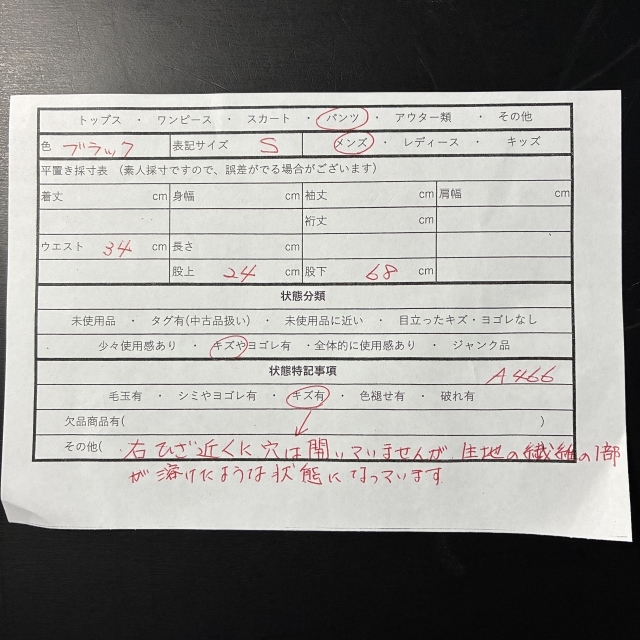 トップス ・ ワンピース ・ スカート ・ パンツ ・ アウター類 ・ その他
色 ブラック 表記サイズ S メンズ ・ レディース ・ キッズ
平置き採寸表 (素人採寸ですので、誤差がでる場合がございます)
着丈 cm 身幅 cm 袖丈 cm 肩幅 cm
裄丈 cm
ウエスト 34 cm 長さ cm
股上 24 cm 股下 68 cm
状態分類
未使用品 ・ タグ有(中古品扱い) ・ 未使用品に近い ・ 目立ったキズ・ヨゴレなし
少々使用感あり ・ キズやヨゴレ有 ・全体的に使用感あり ・ ジャンク品
状態特記事項 A466
毛玉有 ・ シミやヨゴレ有 ・ キズ有 ・ 色褪せ有 ・ 破れ有
欠品商品有( )
その他( 右ひざ近くに穴は開いていませんが 生地の繊維の1部
が溶けたような状態になっています